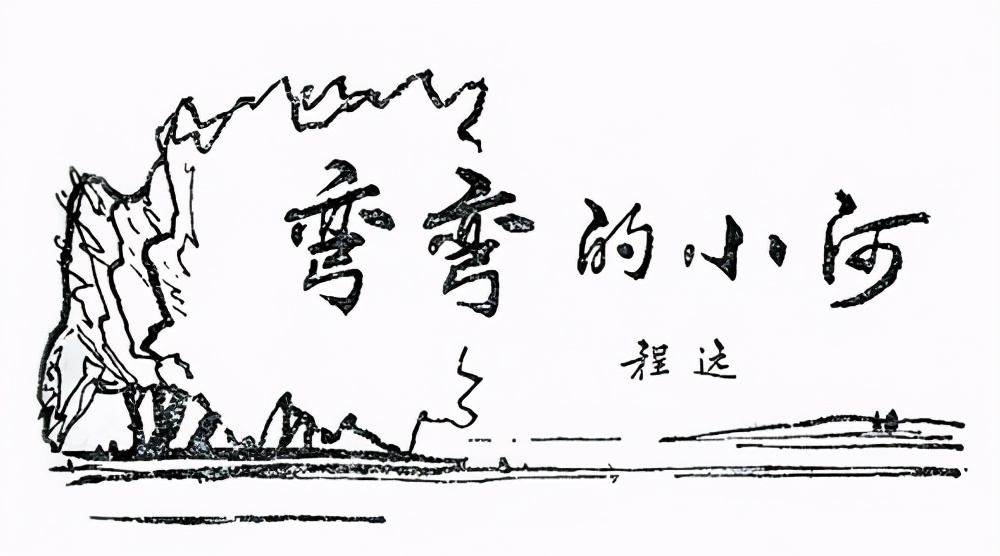 弯弯的小河
程远